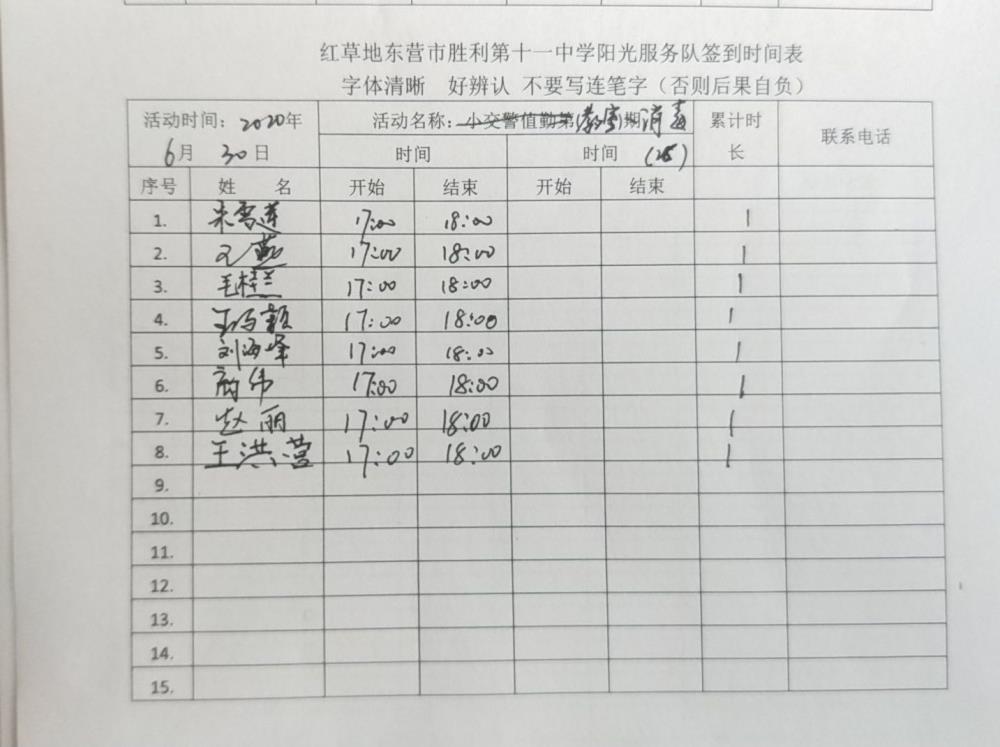 红草地东营市胜利第十一中学阳光服务队签到时间表
字体清晰 好辨认 不要写连笔字（否则后果自负）
活动时间：2020年 活动名称：小交警值勤第 教室 期 消毒 累计时 联系电话
6月 30日 时间 时间 长
序号 姓 名 开始 结束 开始 结束
1. 朱雪莲 17:00 18:00 1
2. 燕 17:00 18:00 1
3. 毛桂兰 17:00 18:00 1
4. 颖 17:00 18:00 1
5. 刘海峰 17:00 18:00 1
6. 伟 17:00 18:00 1
7. 赵丽 17:00 18:00 1
8. 王洪营 17:00 18:00 1
9.
10.
11.
12.
13.
14.
15.